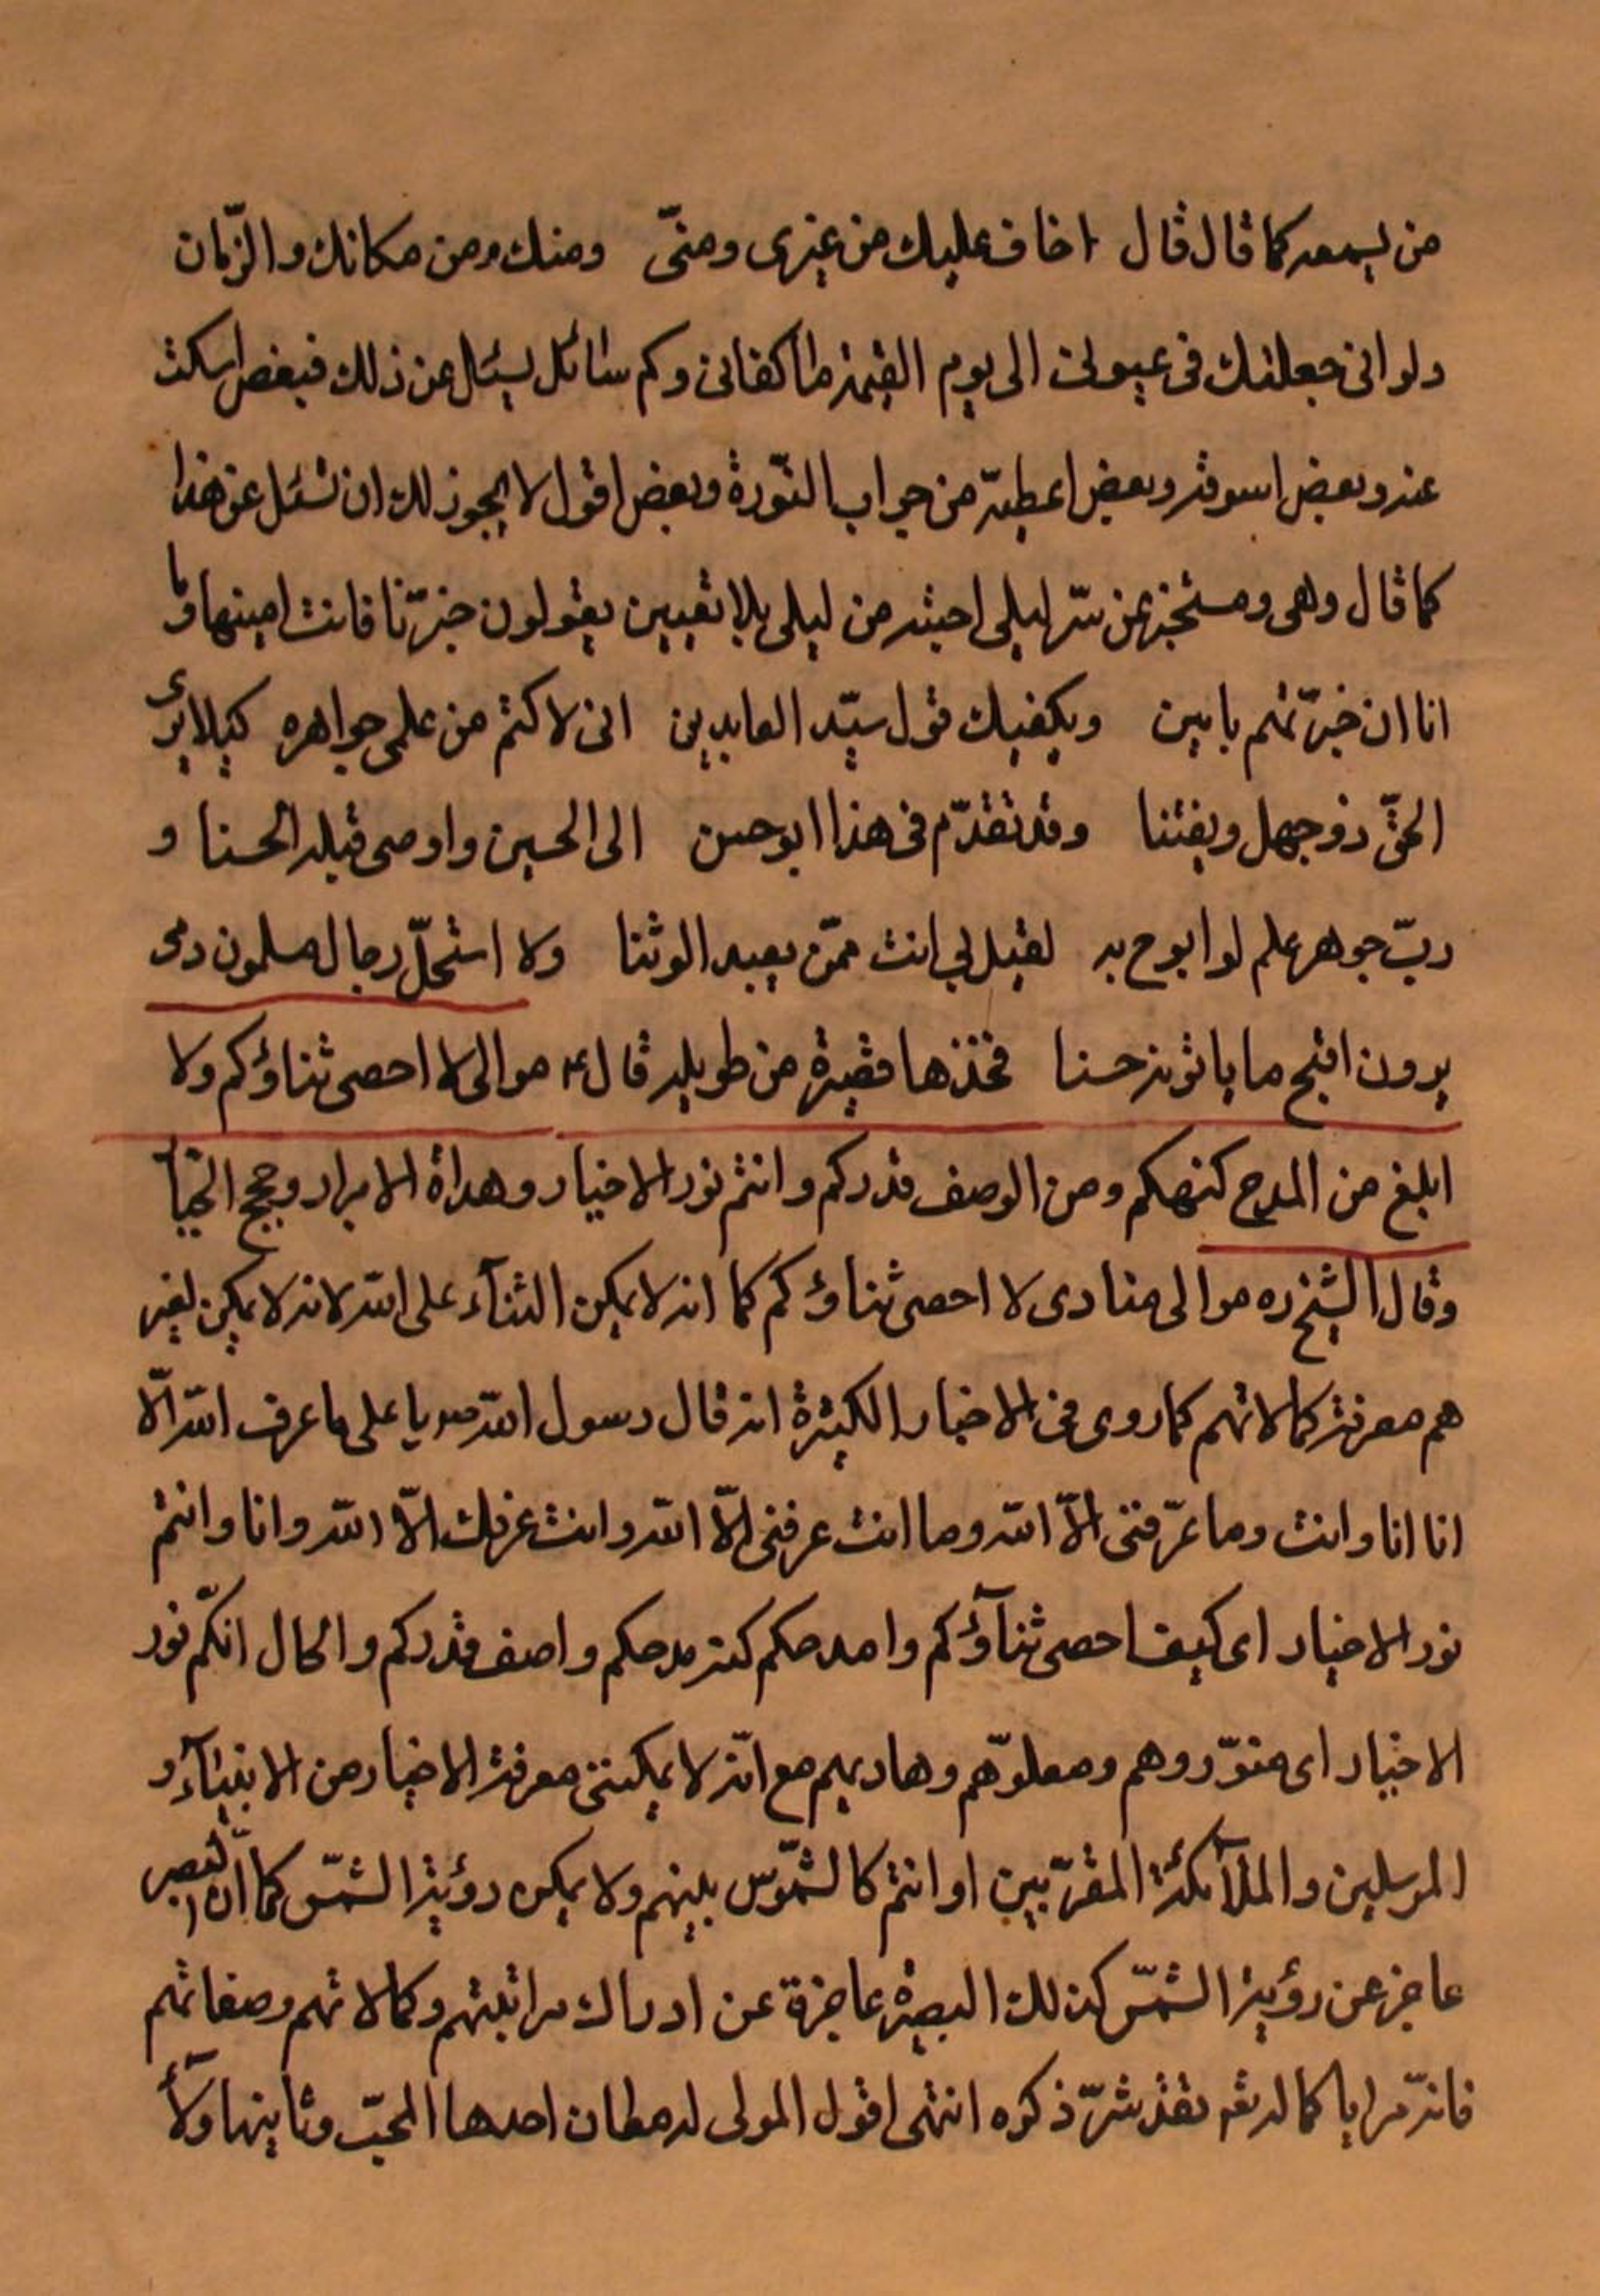 من يسمعه كما قال قال اخاف عليك من غيرى ومنّى ومنك ومن مكانك والزّمان
ولو انى جعلتك فى عيونى الى يوم القيمة ما كفانى وكم سائل يسئل عن ذلك فبعض اسكت
عنه وبعض اسوفه وبعض اعطيه من جواب النّورة وبعض اقول لا يجوز لك ان تسئل عن هذا
كما قال وهى ومستخبر عن سّر ليلى اجبته من ليلى بلا تعيين يقولون خبرّنا فانت امينها وما
انا ان خبرّتهم بامين ويكفيك قول سيّد العابدين انى لاكتم من علمى جواهره كيلا يرى
الحقّ ذو جهل ويفتننا وقد تقدّم فى هذا ابو حسن الى الحسين واوصى قبله الحسنا و
ربّ جوهر علم لو ابوح به لقيل لى انت ممّن يعبد الوثنا ولا استحلّ رجال مسلمون دمى
يرون اقبح ما ياتونه حسنا فخذها قصيرة من طويله قال ع موالى لا احصى ثناؤكم ولا
ابلغ من المدح كنهكم ومن الوصف قدركم وانتم نور الاخيار وهداة الابرار وحجج الجبّار
وقال الشيخ ره موالى منادى لا احصى ثناؤكم كما انه لا يمكن الثنآء على الله لانه لا يمكن لغير
هم معرفة كمالاتهم كما روى فى الاخبار الكثيرة انه قال رسول الله ص يا على ما عرف الله الّا
انا انا وانت وما عرّفنى الّا الله وما انت عرفنى الّا الله وانت عرفك الّا الله وانا وانتم
نور الاخيار اى كيف احصى ثنآؤكم وامدحكم كنه مدحكم واصف قدركم والحال انكّم نور
الاخيار اى منوّروهم ومعلوّهم وهاديهم مع انّه لا يمكننى معرفة الاخيار من الانبيآء و
المرسلين والملآئكة المقرّبين او انتم كالشمّوس بينهم ولا يمكن رؤية الشمّس كما انّ البصر
عاجز عن رؤية الشمّس كذلك البصيرة عاجزة عن ادراك مراتبتهم وكمالاتهم وصفاتهم
فانهّ مرايا كماله تع بقذ شرّ ذكره انتهى اقول المولى له معان احدها المحبّ وثانيها ولآ